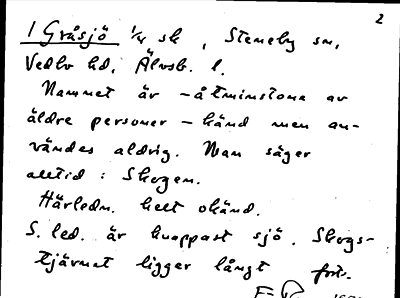 2
1 Gråsjö 1/4 sk , Steneby sn,
Vedbo hd, Älvsb. l.
Namnet är – åtminstone av
äldre personer – känd men an-
vändes aldrig. Man säger
alltid : Skogen.
Härledn. helt okänd.
S. led. är knappast sjö. Skogs-
tjärnet ligger långt